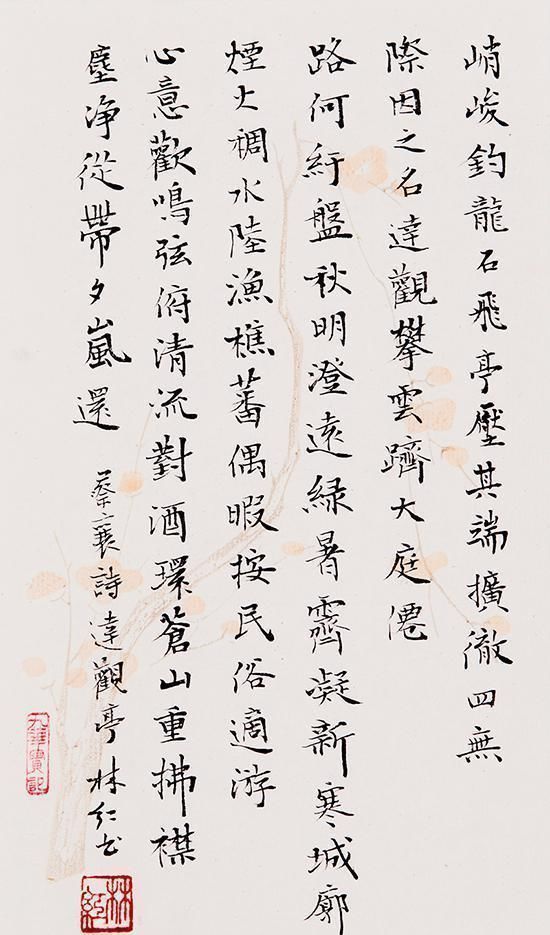 峭峻釣龍石飛亭壓其端擴徹四無
際因之名達觀攀雲躋大庭僊
路何紆盤秋明澄遠綠暑霽凝新寒城廓
煙火稠水陸漁樵蕃偶暇按民俗適游
心意歡鳴弦俯清流對酒環蒼山重拂襟
塵净從帶夕嵐還
蔡襄詩達觀亭 林仁書